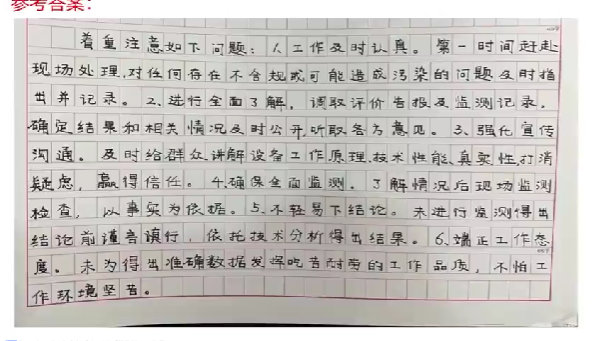 参考答案：
着重注意如下问题：1、工作及时认真。第一时间赶赴
现场处理，对任何存在不合规或可能造成污染的问题及时指
出并记录。2、进行全面了解，调取评价告报及监测记录，
确定结果和相关情况及时公开，听取各方意见。3、强化宣传
沟通。及时给群众讲解设备工作原理，技术性能，真实性，打消
疑虑，赢得信任。4、确保全面监测。了解情况后现场监测
检查，以事实为依据。5、不轻易下结论。未进行监测得出
结论前谨言慎行，依托技术分析得出结果。6、端正工作态
度。未为得出准确数据发挥吃苦耐劳的工作品质，不怕工
作环境坚苦。